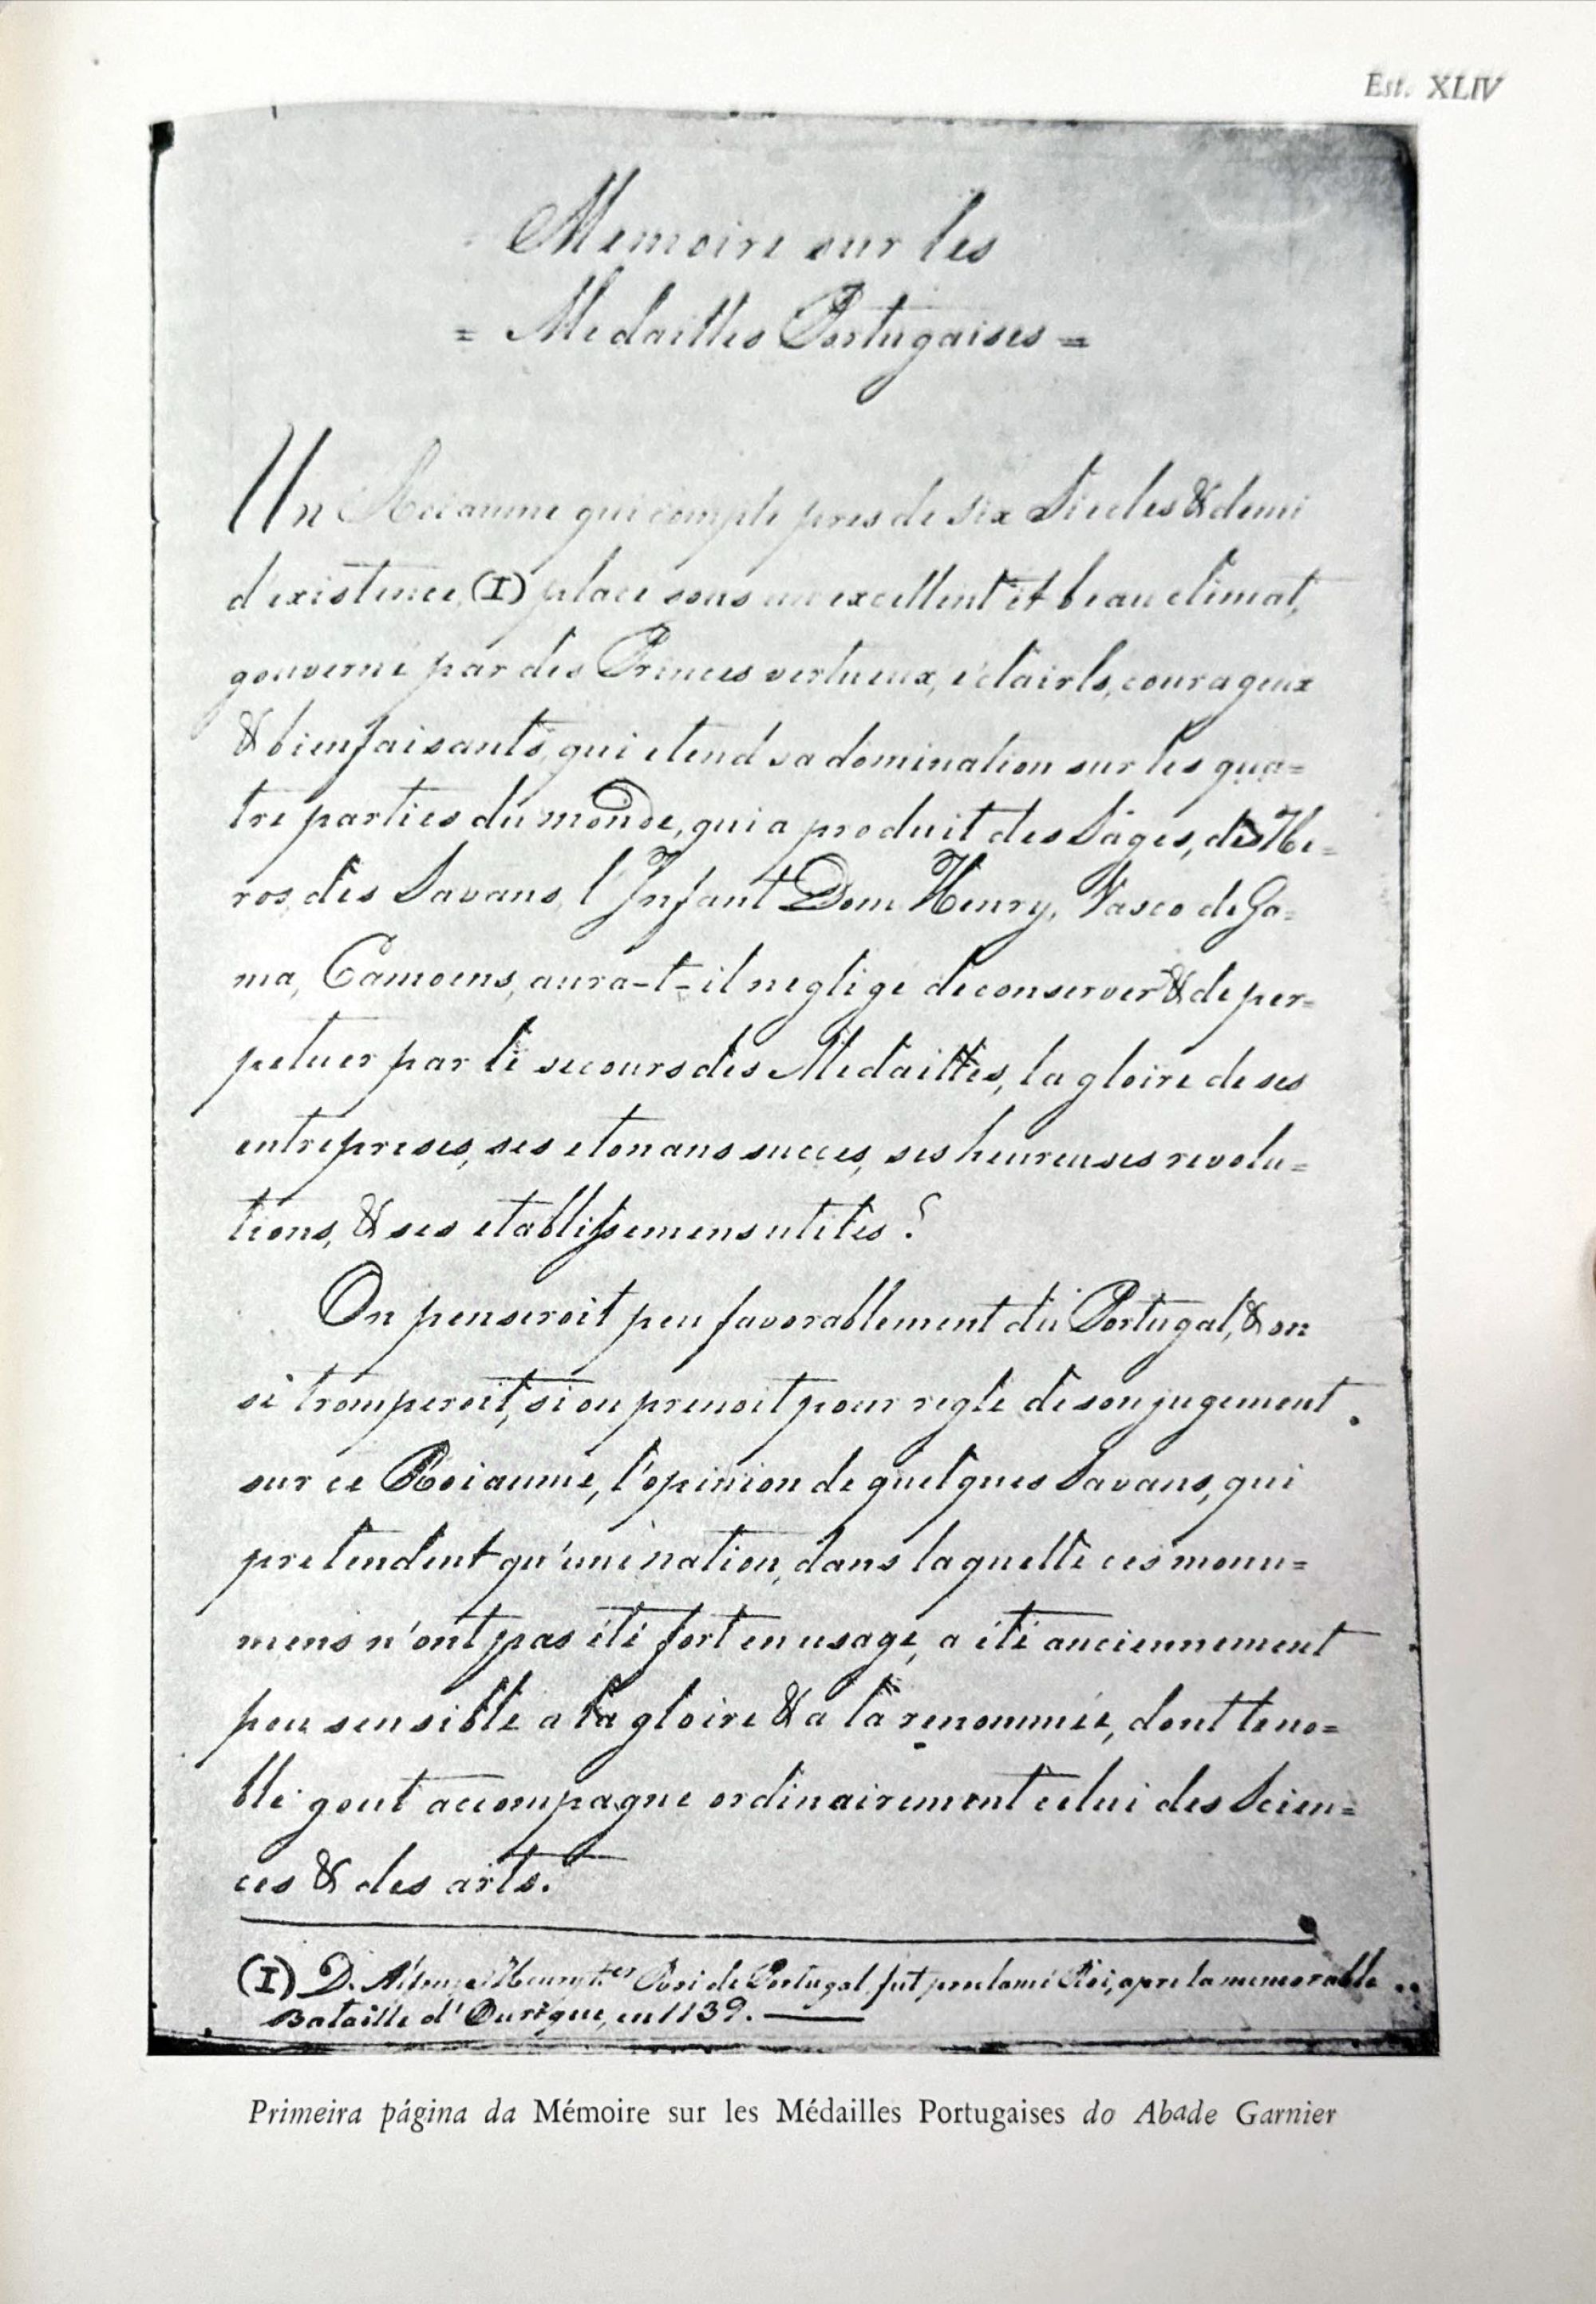 Est. XLIV
Memoire sur les
= Medailles Portugaises =
Un Roiaume qui compte pres de six Siecles & demi
d'existence, (I) placé sous un excellent et beau climat,
gouverné par des Princes vertueux, éclairés, courageux
& bienfaisants, qui etend sa domination sur les qua=
tre parties du monde, qui a produit des Sages, des He=
ros, des Savans, l'Infant Dom Henry, Vasco de Ga=
ma, Camoens, aura-t-il negligé de conserver & de per=
petuer par le secours des Medailles, la gloire de ses
entreprises, ses etonans succes, ses heureuses revolu=
tions, & ses etablissemens utiles?
On penseroit peu favorablement du Portugal, & on
se tromperoit, si on prenoit pour regle de son jugement
sur ce Roiaume, l'opinion de quelques Savans, qui
pretendent qu'une nation, dans laquelle ces monu=
mens n'ont pas été fort en usage, a été anciennement
peu sensible a la gloire & a la renommée, dont le no=
ble gout accompagne ordinairement celui des Scien=
ces & des arts.
(I) D. Henry Roi de Portugal, fut proclamé Roi, apre la memorable
Bataille d'Ourique, en 1139.
Primeira página da Mémoire sur les Médailles Portugaises do Abade Garnier